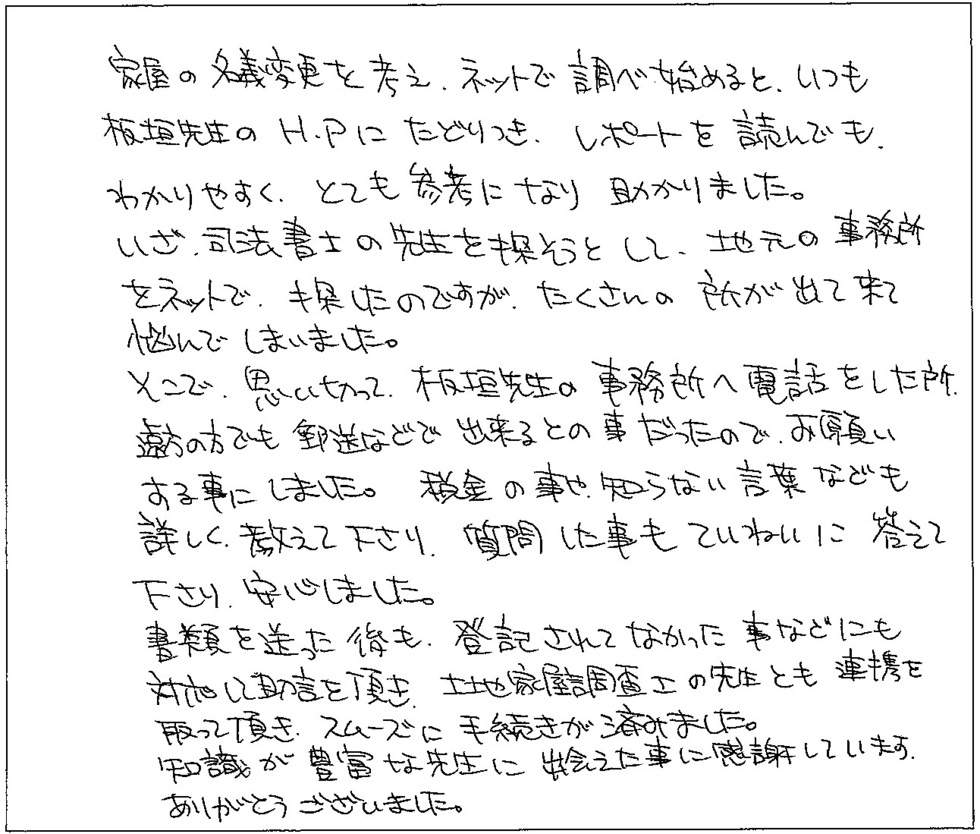 家屋の名義変更を考え、ネットで調べ始めると、いつも
板垣先生のH.Pにたどりつき、レポートを読んでも、
わかりやすく、とても参考になり助かりました。
いざ、司法書士の先生を探そうとして、地元の事務所
をネットで、探したのですが、たくさんの所が出て来て
悩んでしまいました。
そこで、思い切って、板垣先生の事務所へ電話をした所、
遠方の方でも郵送などで出来るとの事だったので、お願い
する事にしました。税金の事や、知らない言葉なども
詳しく、教えて下さり、質問した事もていねいに答えて
下さり、安心しました。
書類を送った後も、登記されてなかった事などにも
対応して助言を頂き、土地家屋調査士の先生とも連携を
取って頂き、スムーズに手続きが済みました。
知識が豊富な先生に出会えた事に感謝しています。
ありがとうございました。